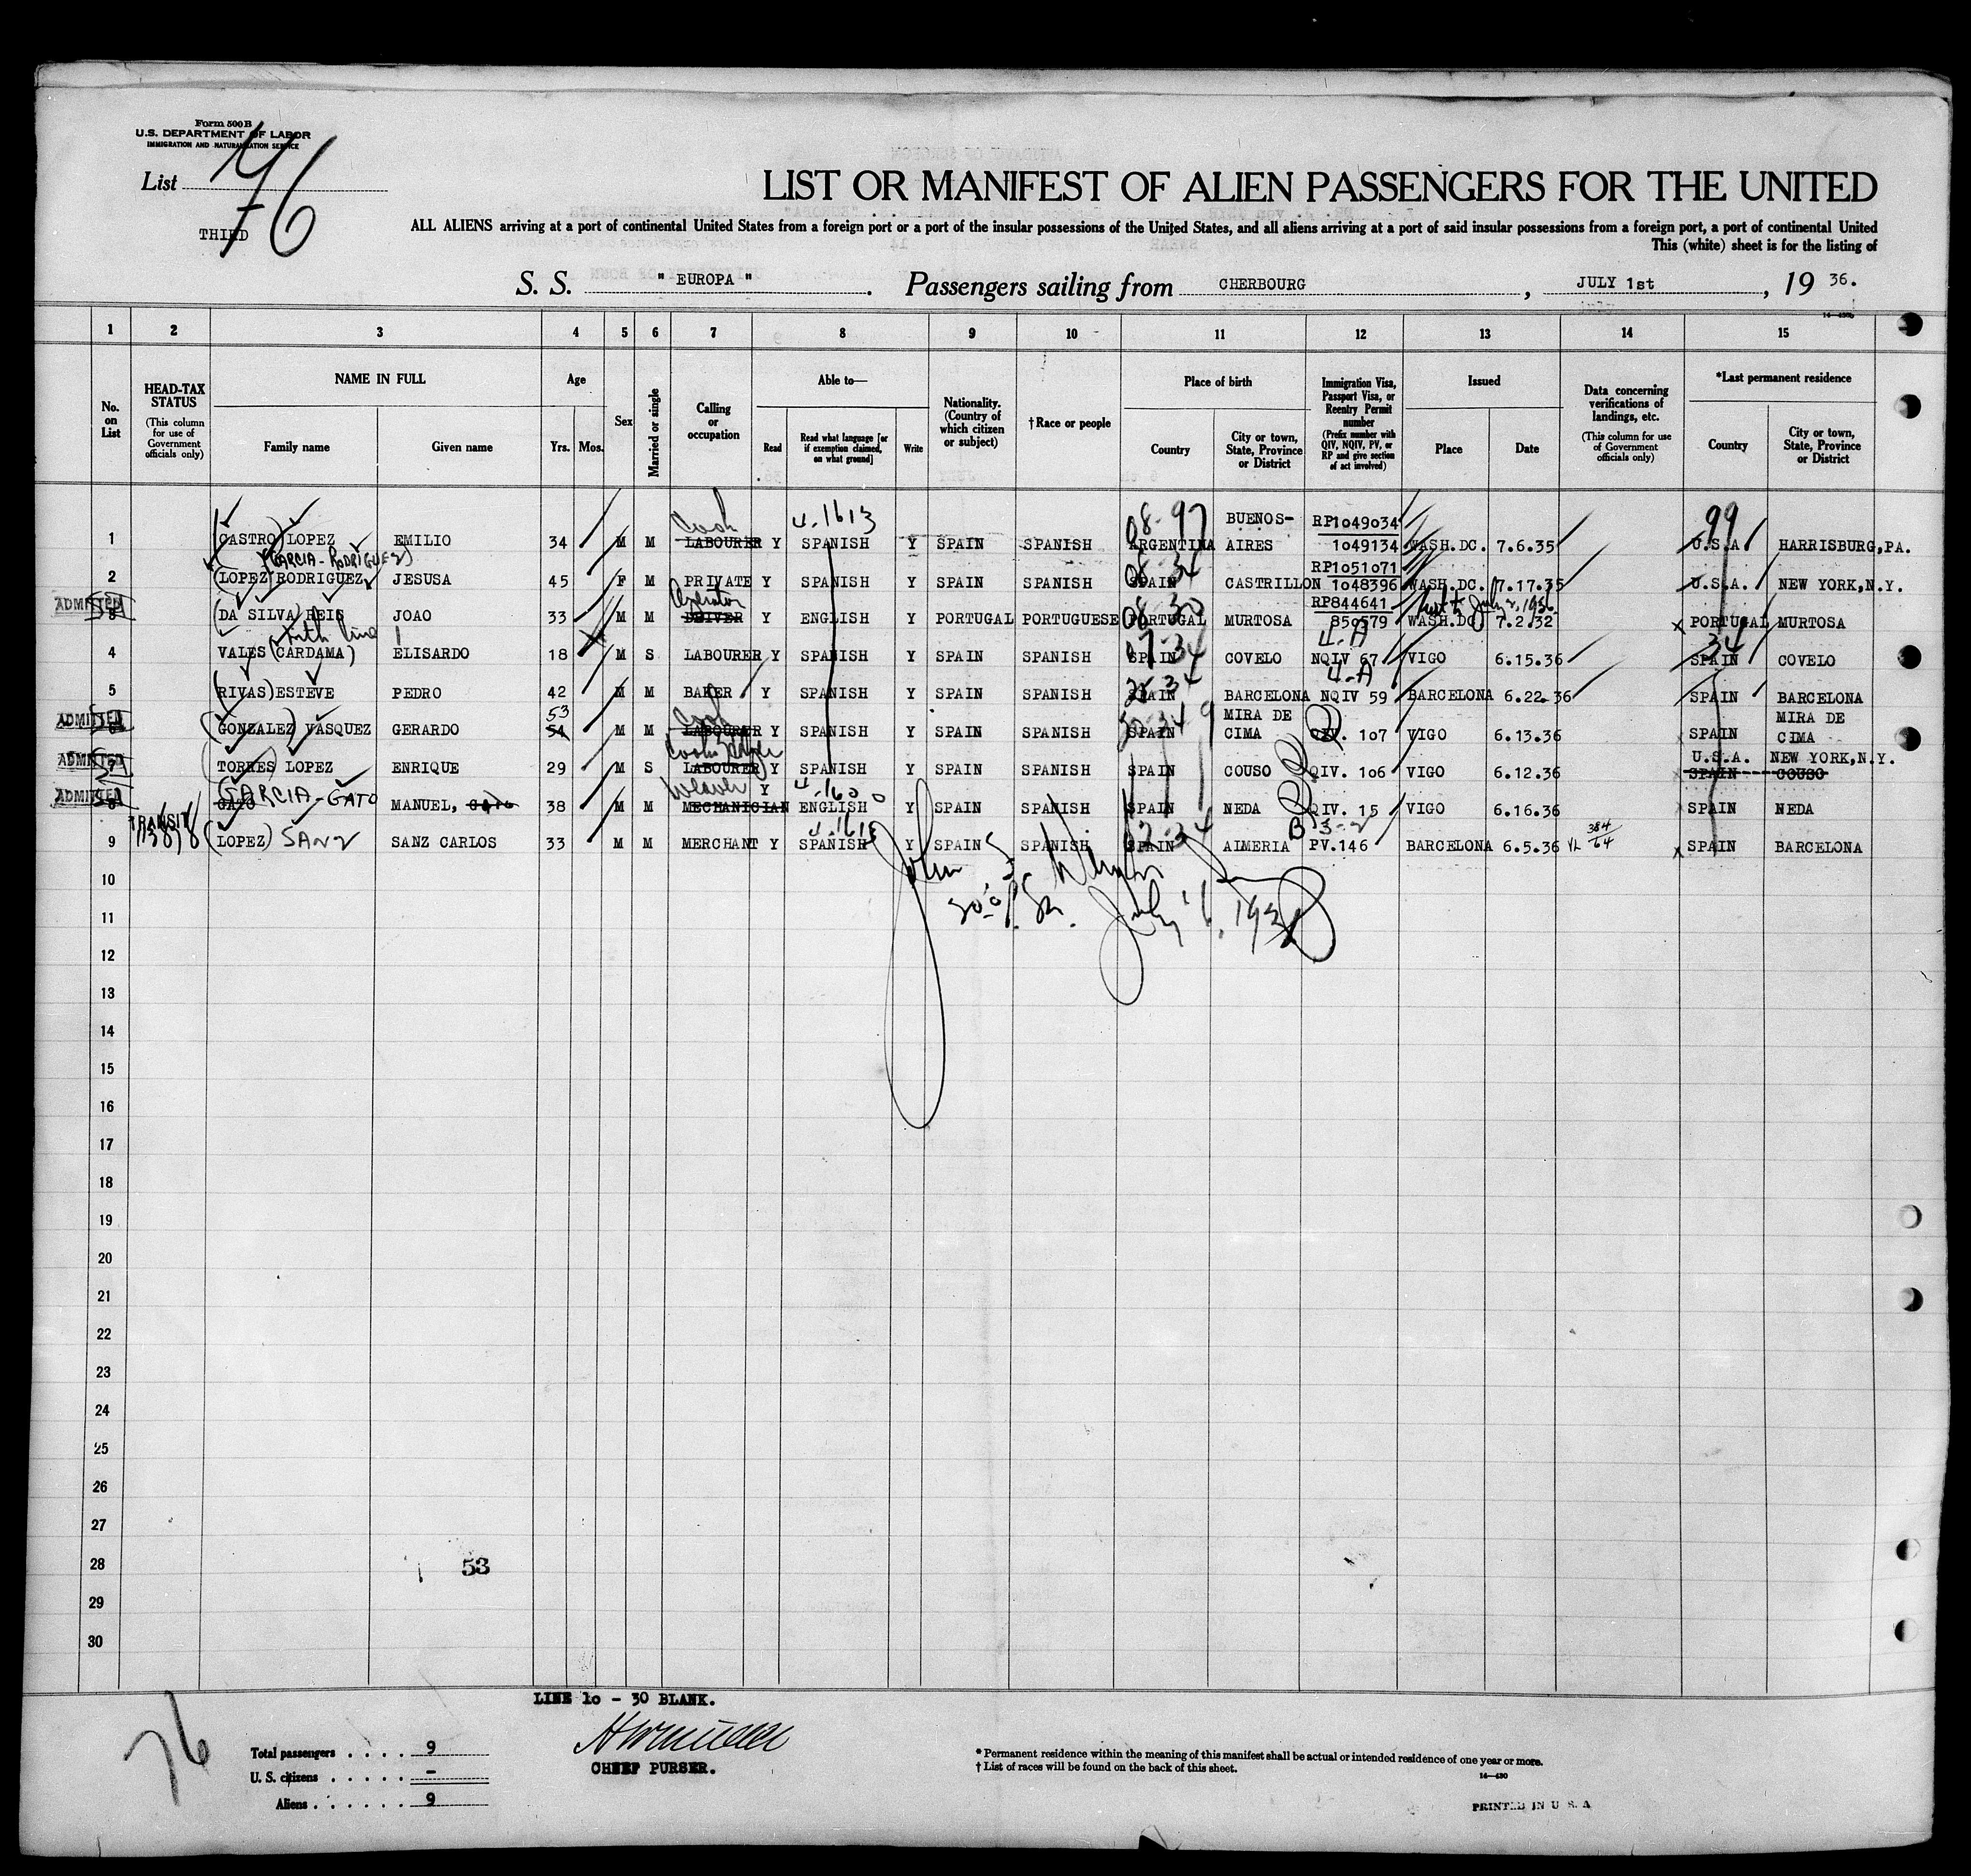 Form 500 B
U.S. DEPARTMENT OF LABOR
IMMIGRATION AND NATURALIZATION SERVICE
List 76
THIRD
LIST OR MANIFEST OF ALIEN PASSENGERS FOR THE UNITED
ALL ALIENS arriving at a port of continental United States from a foreign port or a port of the insular possessions of the United States, and all aliens arriving at a port of said insular possessions from a foreign port, a port of continental United
This (white) sheet is for the listing of
S. S. "EUROPA". Passengers sailing from CHERBOURG, JULY 1st, 19 36.
1 2 3 4 5 6 7 8 9 10 11 12 13 14 15
No. on List
HEAD-TAX STATUS
(This column for use of Government officials only)
NAME IN FULL
Family name
Given name
Age
Yrs. Mos.
Sex
Married or single
Calling or occupation
Able to—
Read
Read what language [or if exemption claimed, on what ground]
Write
Nationality. (Country of which citizen or subject)
†Race or people
Place of birth
Country
City or town, State, Province or District
Immigration Visa, Passport Visa, or Reentry Permit number
(Prefix number with QIV, NQIV, PV, or RP and give section of act involved)
Issued
Place
Date
Data concerning verifications of landings, etc.
(This column for use of Government officials only)
*Last permanent residence
Country
City or town, State, Province or District
Cook 4.1613 08-97 BUENOS- RP1049034 99
1 (CASTRO) LOPEZ EMILIO 34 M M LABOURER Y SPANISH Y SPAIN SPANISH ARGENTINA AIRES 1049134 WASH.DC. 7.6.35 U.S.A. HARRISBURG,PA.
(GARCIA-RODRIGUEZ) 08 34 RP1051071
2 (LOPEZ) RODRIGUEZ JESUSA 45 F M PRIVATE Y SPANISH Y SPAIN SPANISH SPAIN CASTRILLON 1048396 WASH.DC. 7.17.35 U.S.A. NEW YORK,N.Y.
ADMITTED Operator 08-30 RP844641 July 2, 1936
3 (DA SILVA) REIS JOAO 33 M M DRIVER Y ENGLISH Y PORTUGAL PORTUGUESE PORTUGAL MURTOSA 850579 WASH.DC. 7.2.32 x PORTUGAL MURTOSA
4-A 34
4 VALES (CARDAMA) ELISARDO 18 M S LABOURER Y SPANISH Y SPAIN SPANISH SPAIN COVELO NQIV 67 VIGO 6.15.36 SPAIN COVELO
4-A
5 (RIVAS) ESTEVE PEDRO 42 M M BAKER Y SPANISH Y SPAIN SPANISH SPAIN BARCELONA NQIV 59 BARCELONA 6.22.36 SPAIN BARCELONA
ADMITTED 53 Cook MIRA DE MIRA DE
6 (GONZALEZ) VASQUEZ GERARDO 54 M M LABOURER Y SPANISH Y SPAIN SPANISH SPAIN CIMA QIV. 107 VIGO 6.13.36 SPAIN CIMA
ADMITTED U.S.A. NEW YORK,N.Y.
7 (TORRES LOPEZ ENRIQUE 29 M S LABOURER Y SPANISH Y SPAIN SPANISH SPAIN COUSO QIV. 106 VIGO 6.12.36 SPAIN COUSO
ADMITTED GARCIA-GATO Weaver Y 4.1600
8 GATO MANUEL, GATO 38 M M MECHANICIAN ENGLISH Y SPAIN SPANISH SPAIN NEDA QIV. 15 VIGO 6.16.36 SPAIN NEDA
TRANSIT B 3-2 384/64
9 (LOPEZ) SANZ SANZ CARLOS 33 M M MERCHANT Y SPANISH Y SPAIN SPANISH SPAIN AlMERIA PV.146 BARCELONA 6.5.36 x SPAIN BARCELONA
10
11
12
13
14
15
16
17
18
19
20
21
22
23
24
25
26
27
28 53
29
30
LINE 10 - 30 BLANK.
76
CHIEF PURSER.
Total passengers . . . . 9
U. S. citizens . . . . . –
Aliens . . . . . . 9
* Permanent residence within the meaning of this manifest shall be actual or intended residence of one year or more.
† List of races will be found on the back of this sheet.
14—430
PRINTED IN U. S. A